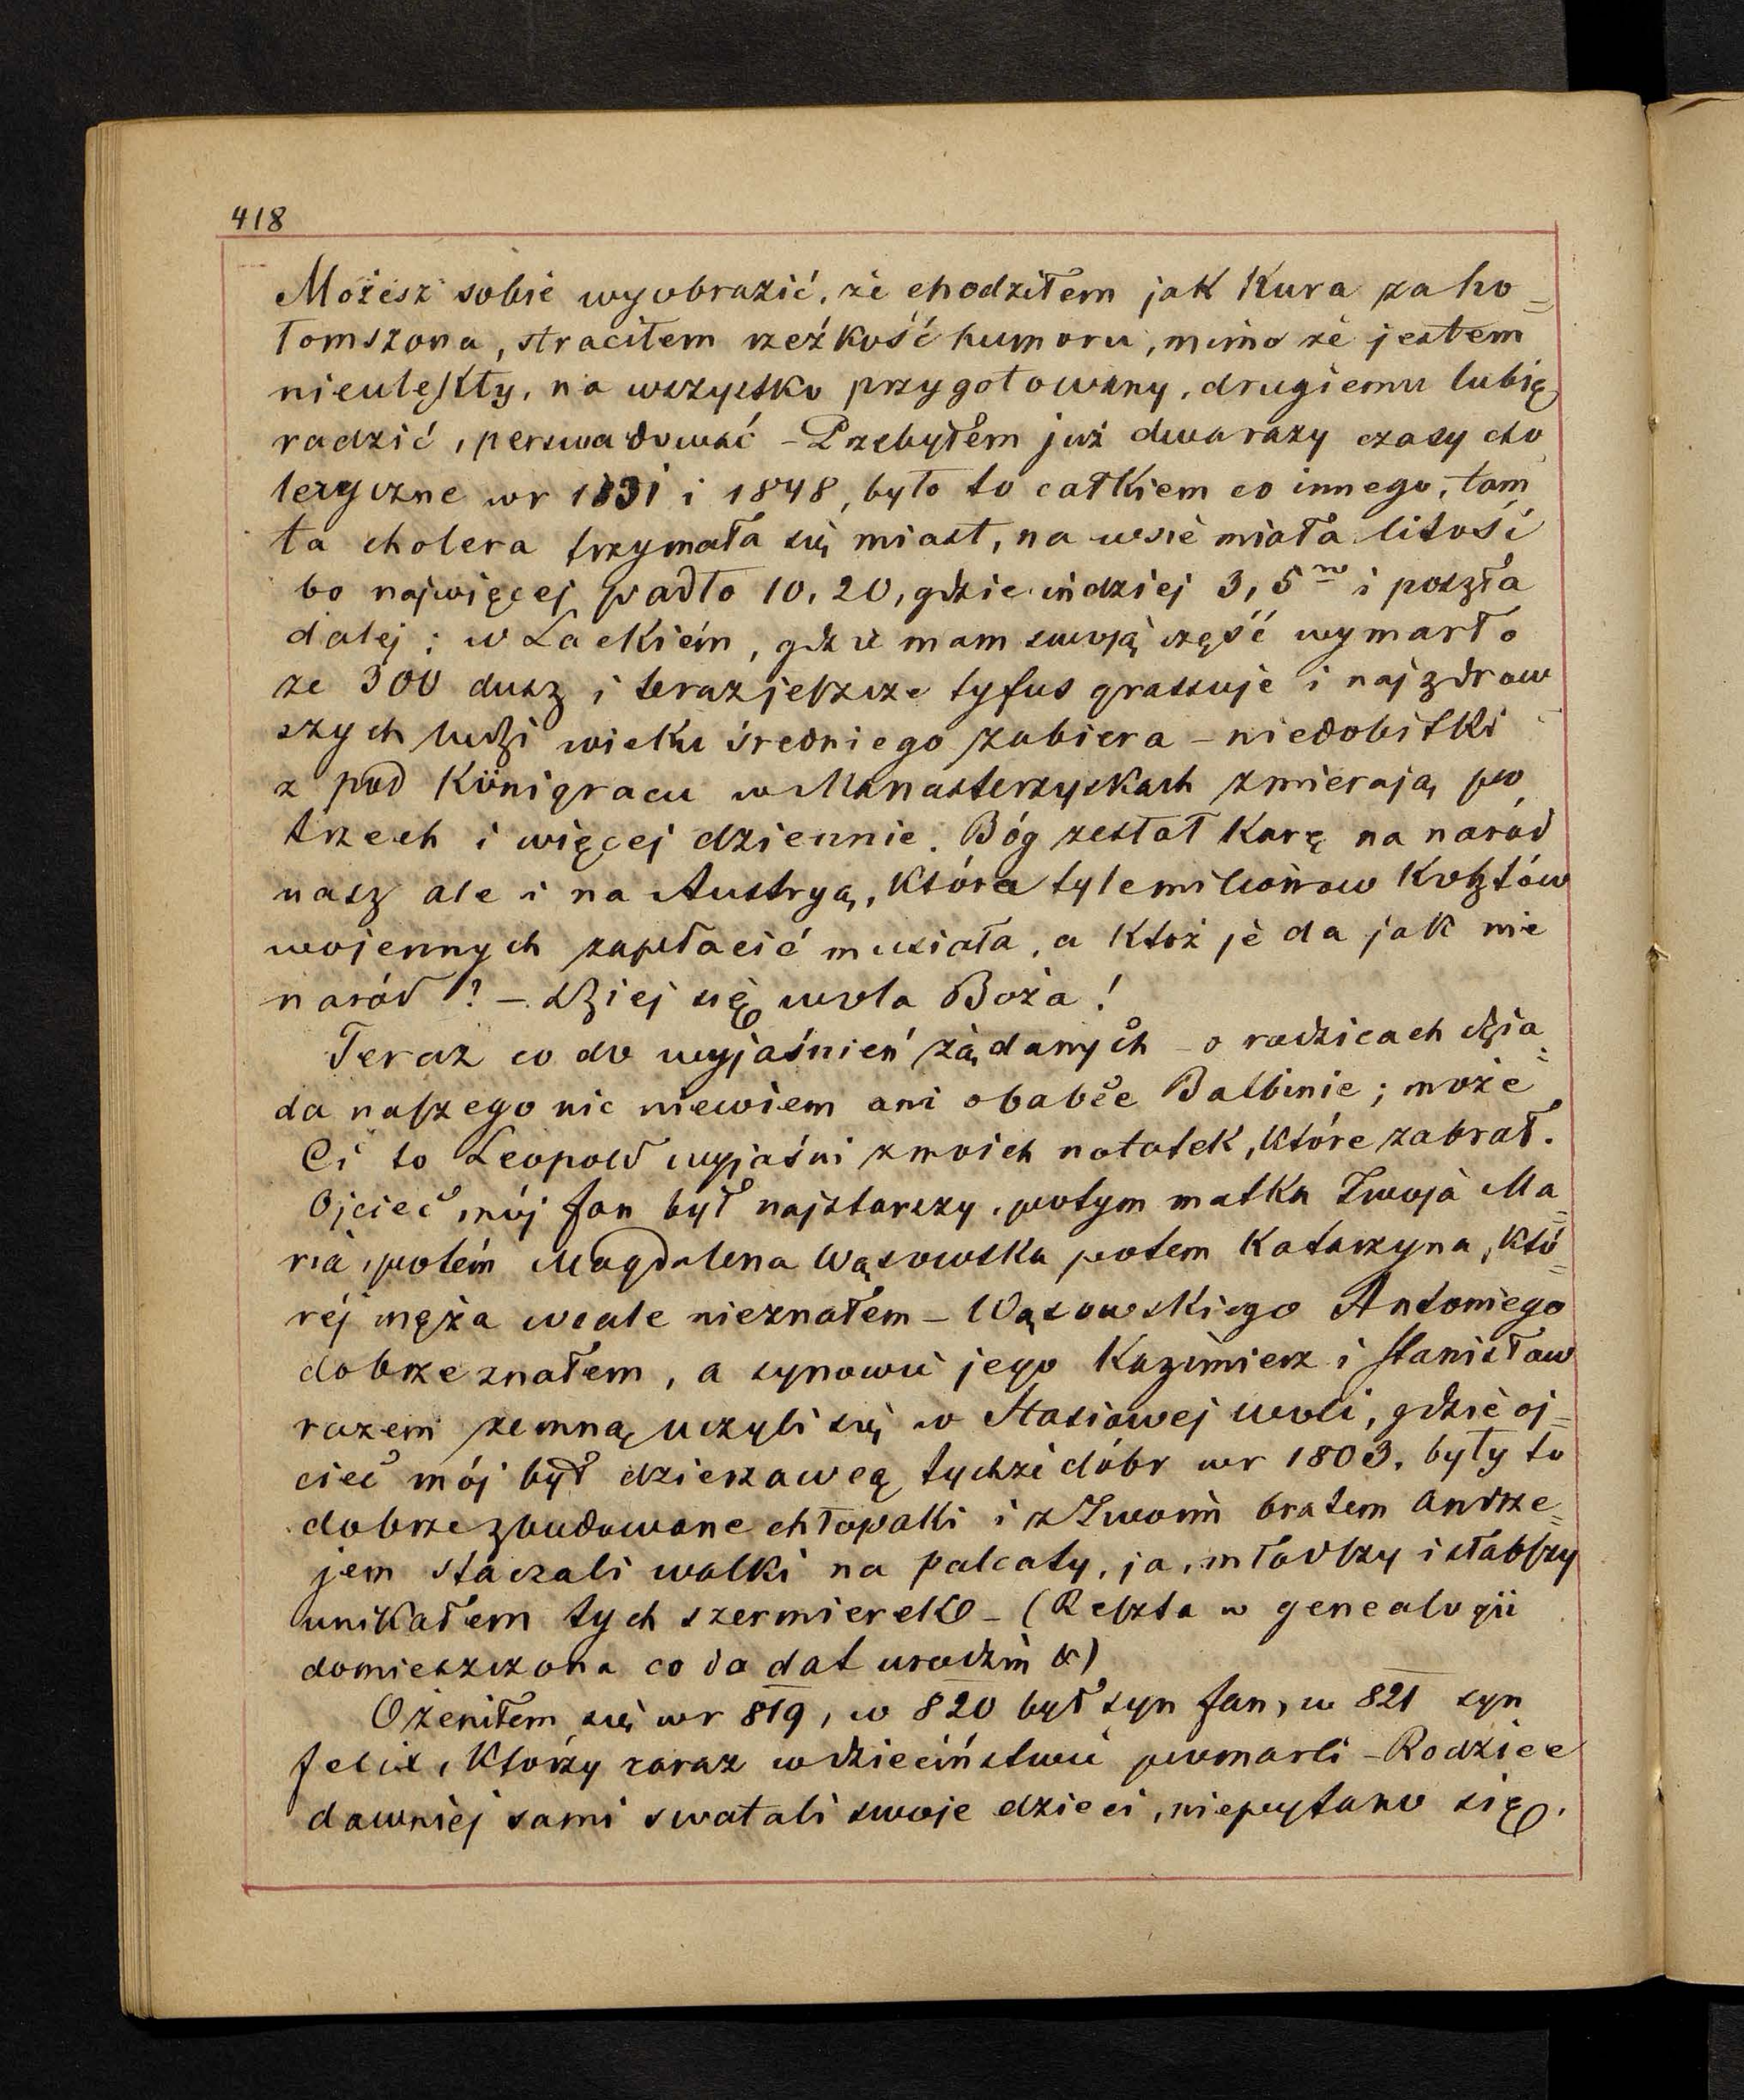 418
Możesz sobie wyobrazić, że chodziłem jak Kura zaho=
łomszona, straciłem rzeźkość humoru, mimo że jestem
nieulękły, na wszystko przygotowany, drugiemu lubię
radzić, perswadować – Przebyłem już dwa razy czasy cho
leryczne w r 1831 i 1848, było to całkiem co innego, tam
ta cholera trzymała się miast, na wsie miała litość
bo najwięcej padło 10, 20, gdzieindziej 3, 5ro i poszła
dalej; w Lackiém, gdzie mam swoją część wymarło
ze 300 dusz i teraz jeszcze tyfus grassuje i najzdrow
szych ludzi wieku średniego zabiera – niedobitki
z pod Königracu w Monasterzyskach zmierają po
trzech i więcej dziennie. Bóg zesłał Karę na naród
nasz ale i na Austryą, Która tyle milionow Kosztów
wojennych zapłacić musiała, a Któż je da jak nie
naród? – Dziej się wola Boża!
Teraz co do wyjaśnień żądanych – o rodzicach dzia=
da naszego nic niewiem ani o babce Balbinie; może
Ci to Leopold wyjaśni z moich notatek, Które zabrał.
Ojciec mój Jan był najstarszy, potym matka Twoja Ma=
ria, potém Magdalena Wąsowska potem Katarzyna, Któ=
réj męża wcale nieznałem – Wąsowskiego Antoniego
dobrze znałem, a synowie jego Kazimierz i Stanisław
razem zemną uczyli się w Stasiowej woli, gdzie oj=
ciec mój był dzierzawcą tychże dóbr w r 1803, były to
dobrze zbudowane chłopaki i z Twoim bratem Andrze=
jem staczali walki na palcaty, ja, młodszy i słabszy
unikałem tych szermierek – (Reszta w genealogii
domieszczona co do dat urodzin &)
Ożeniłem się w r 819, w 820 był syn Jan, w 821 syn
Felix, Którzy zaraz w dzieciństwie pomarli – Rodzice
dawniej sami swatali swoje dzieci, niepytano się.